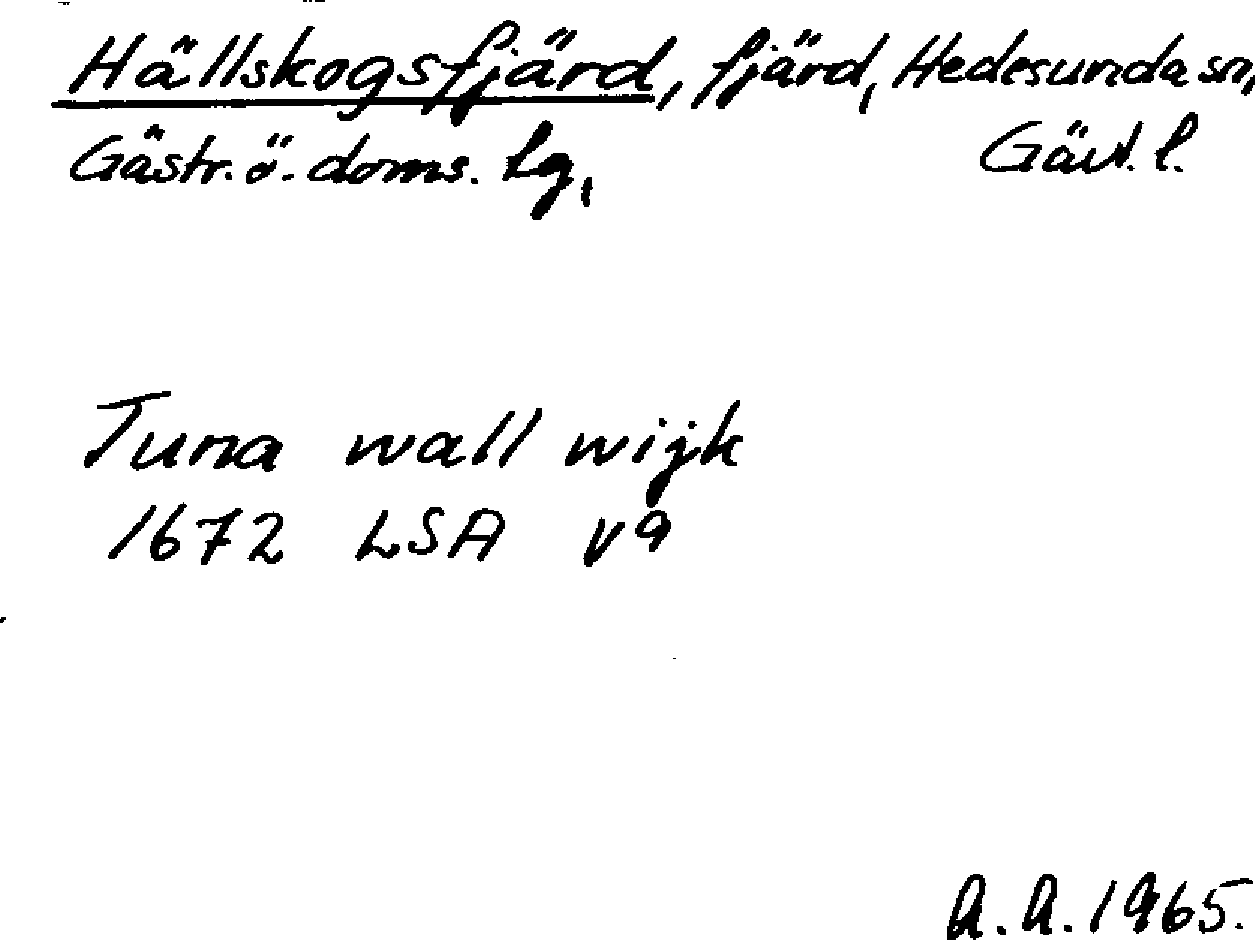 Hällskogsfjärd, fjärd, Hedesunda sn,
Gästr. ö. doms. lg, Gävl. l.
Tuna wall wijk
1672 LSA V9
A. A. 1965.